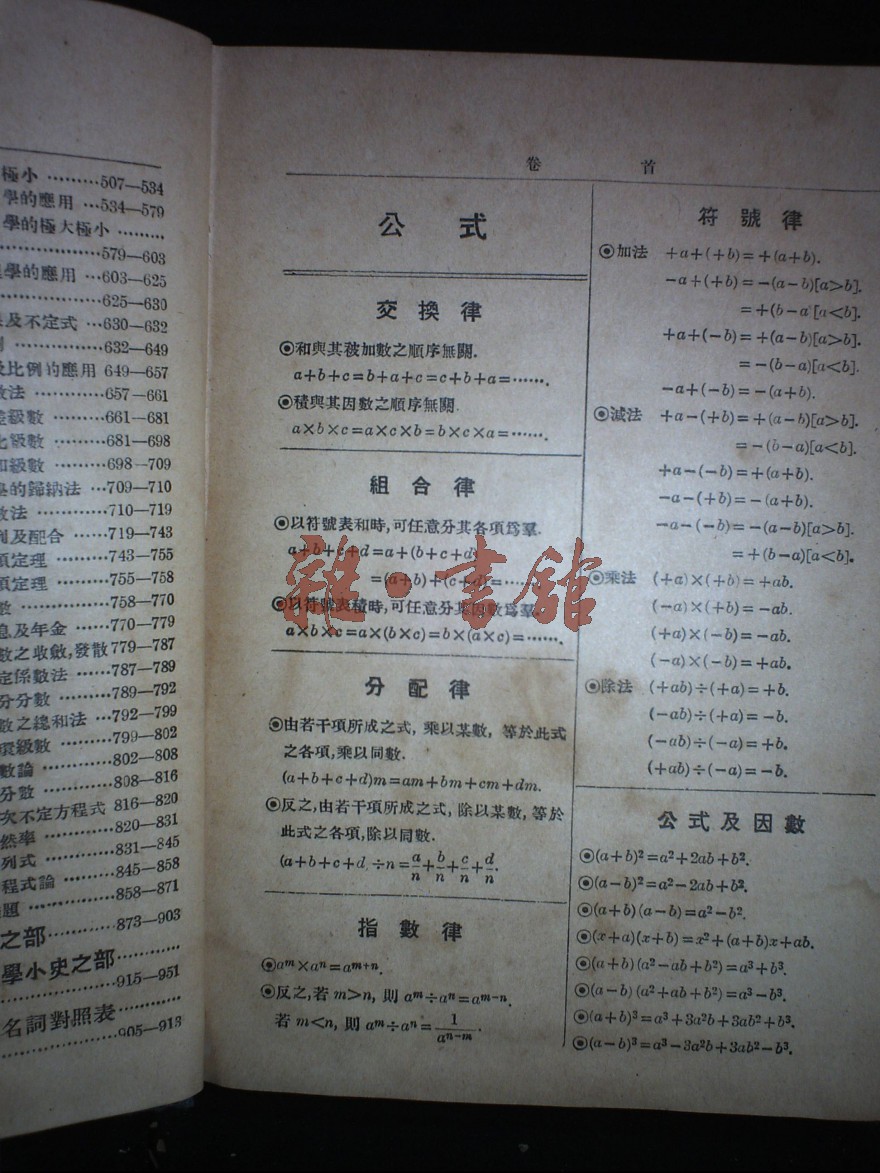 極小 ………507—534
學的應用 …534—579
學的極大極小 ………
………579—603
學的應用 …603—625
………625—630
及不定式 …630—632
………632—649
比例的應用 649—657
數法 ………657—661
級數 ………661—681
級數 ………681—698
級數 ………698—709
學的歸納法 …709—710
數法 ………710—719
及配合 ………719—743
項定理 ………743—755
項定理 ………755—758
數 ………758—770
息及年金 ………770—779
數之收斂,發散 779—787
定係數法 ………787—789
分分數 ………789—792
數之總和法 …792—799
環級數 ………799—802
數論 ………802—808
分數 ………808—816
次不定方程式 816—820
然率 ………820—831
列式 ………831—845
程式論 ………845—858
題 ………858—871
之部 ………873—903
學小史之部 ………
………915—951
名詞對照表 ………
………905—913
卷 首
公 式
交 換 律
◉和與其被加數之順序無關.
a+b+c=b+a+c=c+b+a=…….
◉積與其因數之順序無關.
a×b×c=a×c×b=b×c×a=…….
組 合 律
◉以符號表和時,可任意分其各項爲羣.
a+b+c+d=a+(b+c+d)
=(a+b)+(c+d)=…….
◉以符號表積時,可任意分其因數爲羣.
a×b×c=a×(b×c)=b×(a×c)=…….
分 配 律
◉由若干項所成之式, 乘以某數, 等於此式
之各項,乘以同數.
(a+b+c+d)m=am+bm+cm+dm.
◉反之,由若干項所成之式,除以某數,等於
此式之各項,除以同數.
(a+b+c+d ÷n=a/n+b/n+c/n+d/n.
指 數 律
◉aᵐ×aⁿ=aᵐ⁺ⁿ.
◉反之,若 m>n, 則 aᵐ÷aⁿ=aᵐ⁻ⁿ.
若 m<n, 則 aᵐ÷aⁿ=1/aⁿ⁻ᵐ.
符 號 律
◉加法 +a+(+b)=+(a+b).
-a+(+b)=-(a-b)[a>b].
=+(b-a [a<b].
+a+(-b)=+(a-b)[a>b].
=-(b-a)[a<b].
-a+(-b)=-(a+b).
◉減法 +a-(+b)=+(a-b)[a>b].
=-(b-a)[a<b].
+a-(-b)=+(a+b).
-a-(+b)=-(a+b).
-a-(-b)=-(a-b)[a>b].
=+(b-a)[a<b].
◉乘法 (+a)×(+b)=+ab.
(-a)×(+b)=-ab.
(+a)×(-b)=-ab.
(-a)×(-b)=+ab.
◉除法 (+ab)÷(+a)=+b.
(-ab)÷(+a)=-b.
(-ab)÷(-a)=+b.
(+ab)÷(-a)=-b.
公 式 及 因 數
◉(a+b)²=a²+2ab+b².
◉(a-b)²=a²-2ab+b².
◉(a+b)(a-b)=a²-b².
◉(x+a)(x+b)=x²+(a+b)x+ab.
◉(a+b)(a²-ab+b²)=a³+b³.
◉(a-b)(a²+ab+b²)=a³-b³.
◉(a+b)³=a³+3a²b+3ab²+b³.
◉(a-b)³=a³-3a²b+3ab²-b³.
雜·書館